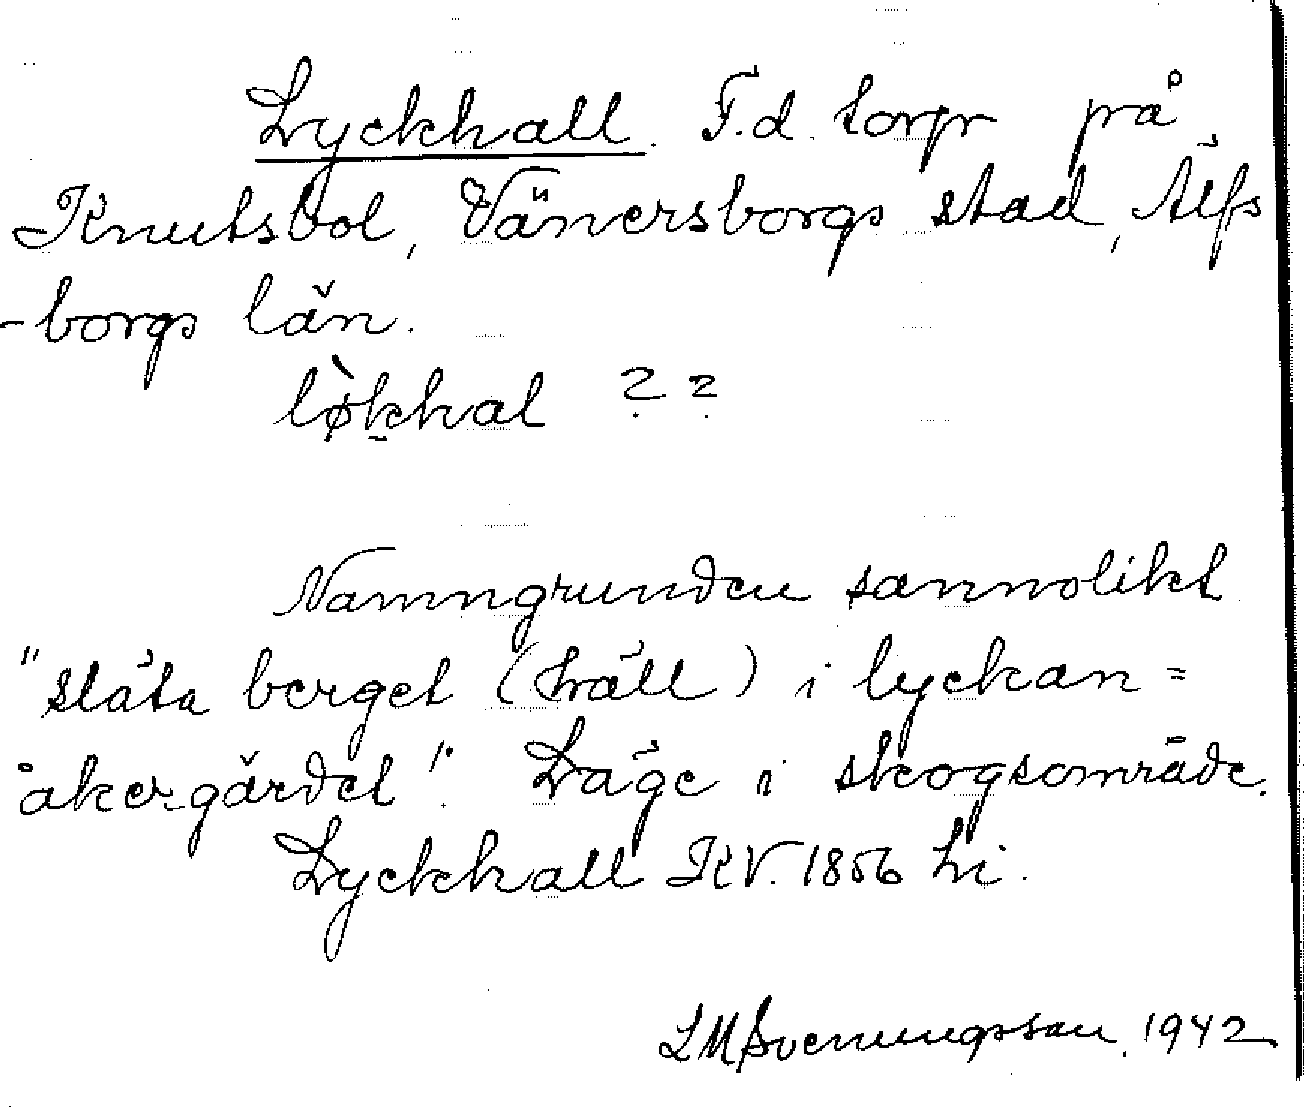 Lyckhall. F.d. torp på
Knutsbol, Vänersborgs stad, Älfs
-borgs län.
lø̀khal ? ?
Namngrunden sannolikt
"släta berget (häll) i lyckan =
åkergärdet". Läge i skogsområde.
Lyckhall KV. 1856 Li.
LMSvenungsson. 1942